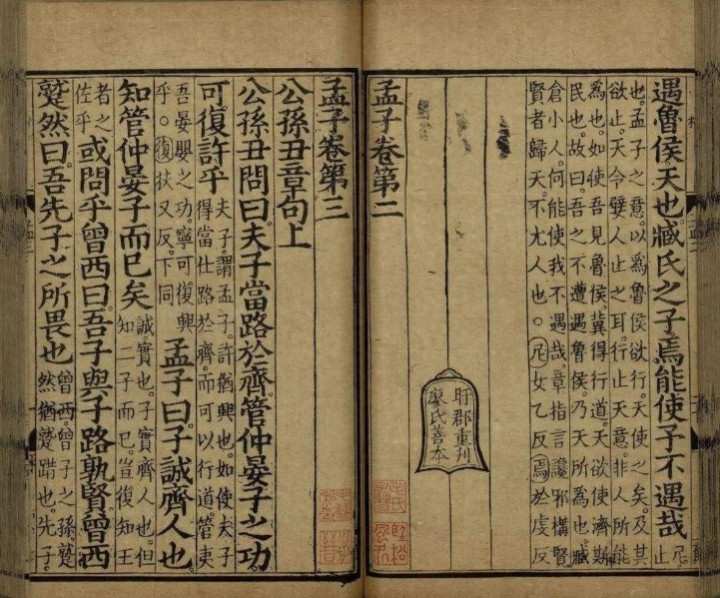 遇魯侯天也臧氏之子焉能使予不遇哉
尼
止
也。孟子之意。以爲魯侯欲行。天使之矣。及其
欲止。天令嬖人止之耳。行止天意。非人所能
爲也。如使吾見魯侯。冀得行道。天欲使濟斯
民也。故曰。吾之不遭遇魯侯。乃天所爲也。臧
倉小人。何能使我不遇哉。章指言讒邪搆賢
賢者歸天。不尤人也。尼女乙反焉於虔反
旴郡重刊
廖氏善本
孟子卷第二
孟子卷第三
公孫丑章句上
公孫丑問曰。夫子當路於齊。管仲晏子之功
可復許乎
夫子謂孟子。許猶興也。如使夫子
得當仕路於齊。而可以行道。管夷
吾晏嬰之功。寧可復興
乎。復扶又反。下同
孟子曰。子誠齊人也
知管仲晏子而已矣
誠。實也。子實齊人也。但
知二子而已。豈復知王
者之
佐乎
或問乎曾西曰。吾子與子路孰賢。曾西
蹵然曰。吾先子之所畏也
曾西。曾子之孫。蹵
然猶蹵踖也。先子。